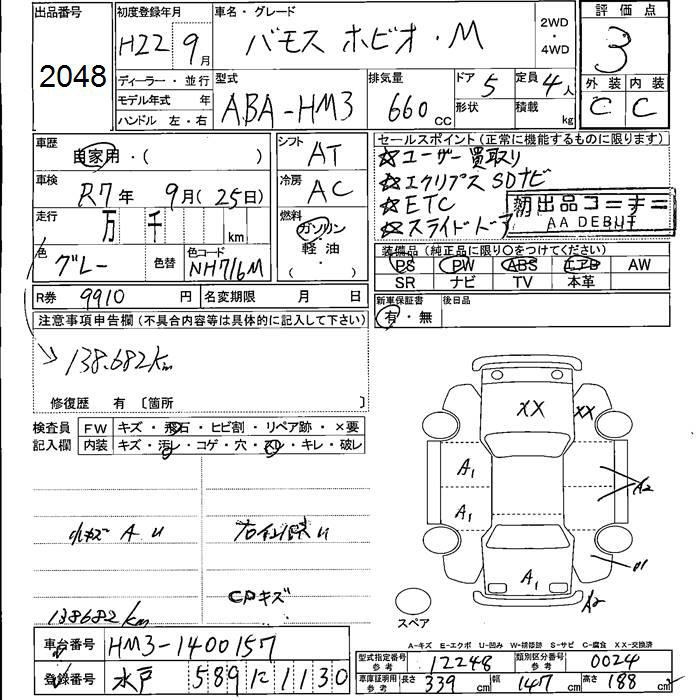 出品番号
2048
初度登録年月
H22 9月
車名・グレード
バモス ホビオ・M
2WD
・
4WD
評価点
3
外装 内装
C C
ディーラー・並行
モデル年式 年
ハンドル 左・右
型式
ABA-HM3
排気量
660 CC
ドア 5
形状
定員 4人
積載 kg
車歴
自家用・( )
車検
R7年 9月(25日)
走行
万 千 km
色
グレー
色替
色コード
NH716M
シフト
AT
冷房
AC
燃料
ガソリン
軽油
・( )
セールスポイント(正常に機能するものに限ります)
☆ユーザー買取り
☆エクリプスSDナビ
☆ETC
☆スライドドア
初出品コーナー
AA DEBUT
装備品(純正品に限り○をつけてください)
PS PW ABS エアB AW
SR ナビ TV 本革
R券 9910 円
名変期限 月 日
新車保証書
有・無
後日品
注意事項申告欄(不具合内容等は具体的に記入して下さい)
138.682km
修復歴 有 〔箇所
検査員
記入欄
FW キズ・飛石・ヒビ割・リペア跡・×要
内装 キズ・汚レ・コゲ・穴・スレ・キレ・破レ
小キズ A U
CDキズ
138682km
XX XX
A1
A1
A2
A1
A2
スペア
A-キズ E-エクボ U-凹み W-補修跡 S-サビ C-腐食 XX-交換済
車台番号 HM3-1400157
登録番号 水戸 589 に 1130
型式指定番号
参考
12248
類別区分番号
参考
0024
車庫証明用
参考
長さ 339 cm 幅 147 cm 高さ 188 cm